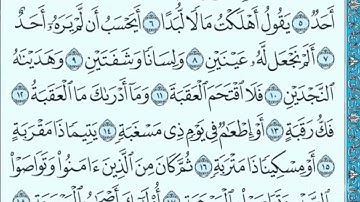 أَحَدٌ ٥ يَقُولُ أَهْلَكْتُ مَالًا لُّبَدًا ٦ أَيَحْسَبُ أَن لَّمْ يَرَهُۥٓ أَحَدٌ
٧ أَلَمْ نَجْعَل لَّهُۥ عَيْنَيْنِ ٨ وَلِسَانًا وَشَفَتَيْنِ ٩ وَهَدَيْنَٰهُ
ٱلنَّجْدَيْنِ ١٠ فَلَا ٱقْتَحَمَ ٱلْعَقَبَةَ ١١ وَمَآ أَدْرَىٰكَ مَا ٱلْعَقَبَةُ ١٢
فَكُّ رَقَبَةٍ ١٣ أَوْ إِطْعَٰمٌ فِى يَوْمٍ ذِى مَسْغَبَةٍ ١٤ يَتِيمًا ذَا مَقْرَبَةٍ
١٥ أَوْ مِسْكِينًا ذَا مَتْرَبَةٍ ١٦ ثُمَّ كَانَ مِنَ ٱلَّذِينَ ءَامَنُوا۟ وَتَوَاصَوْا۟